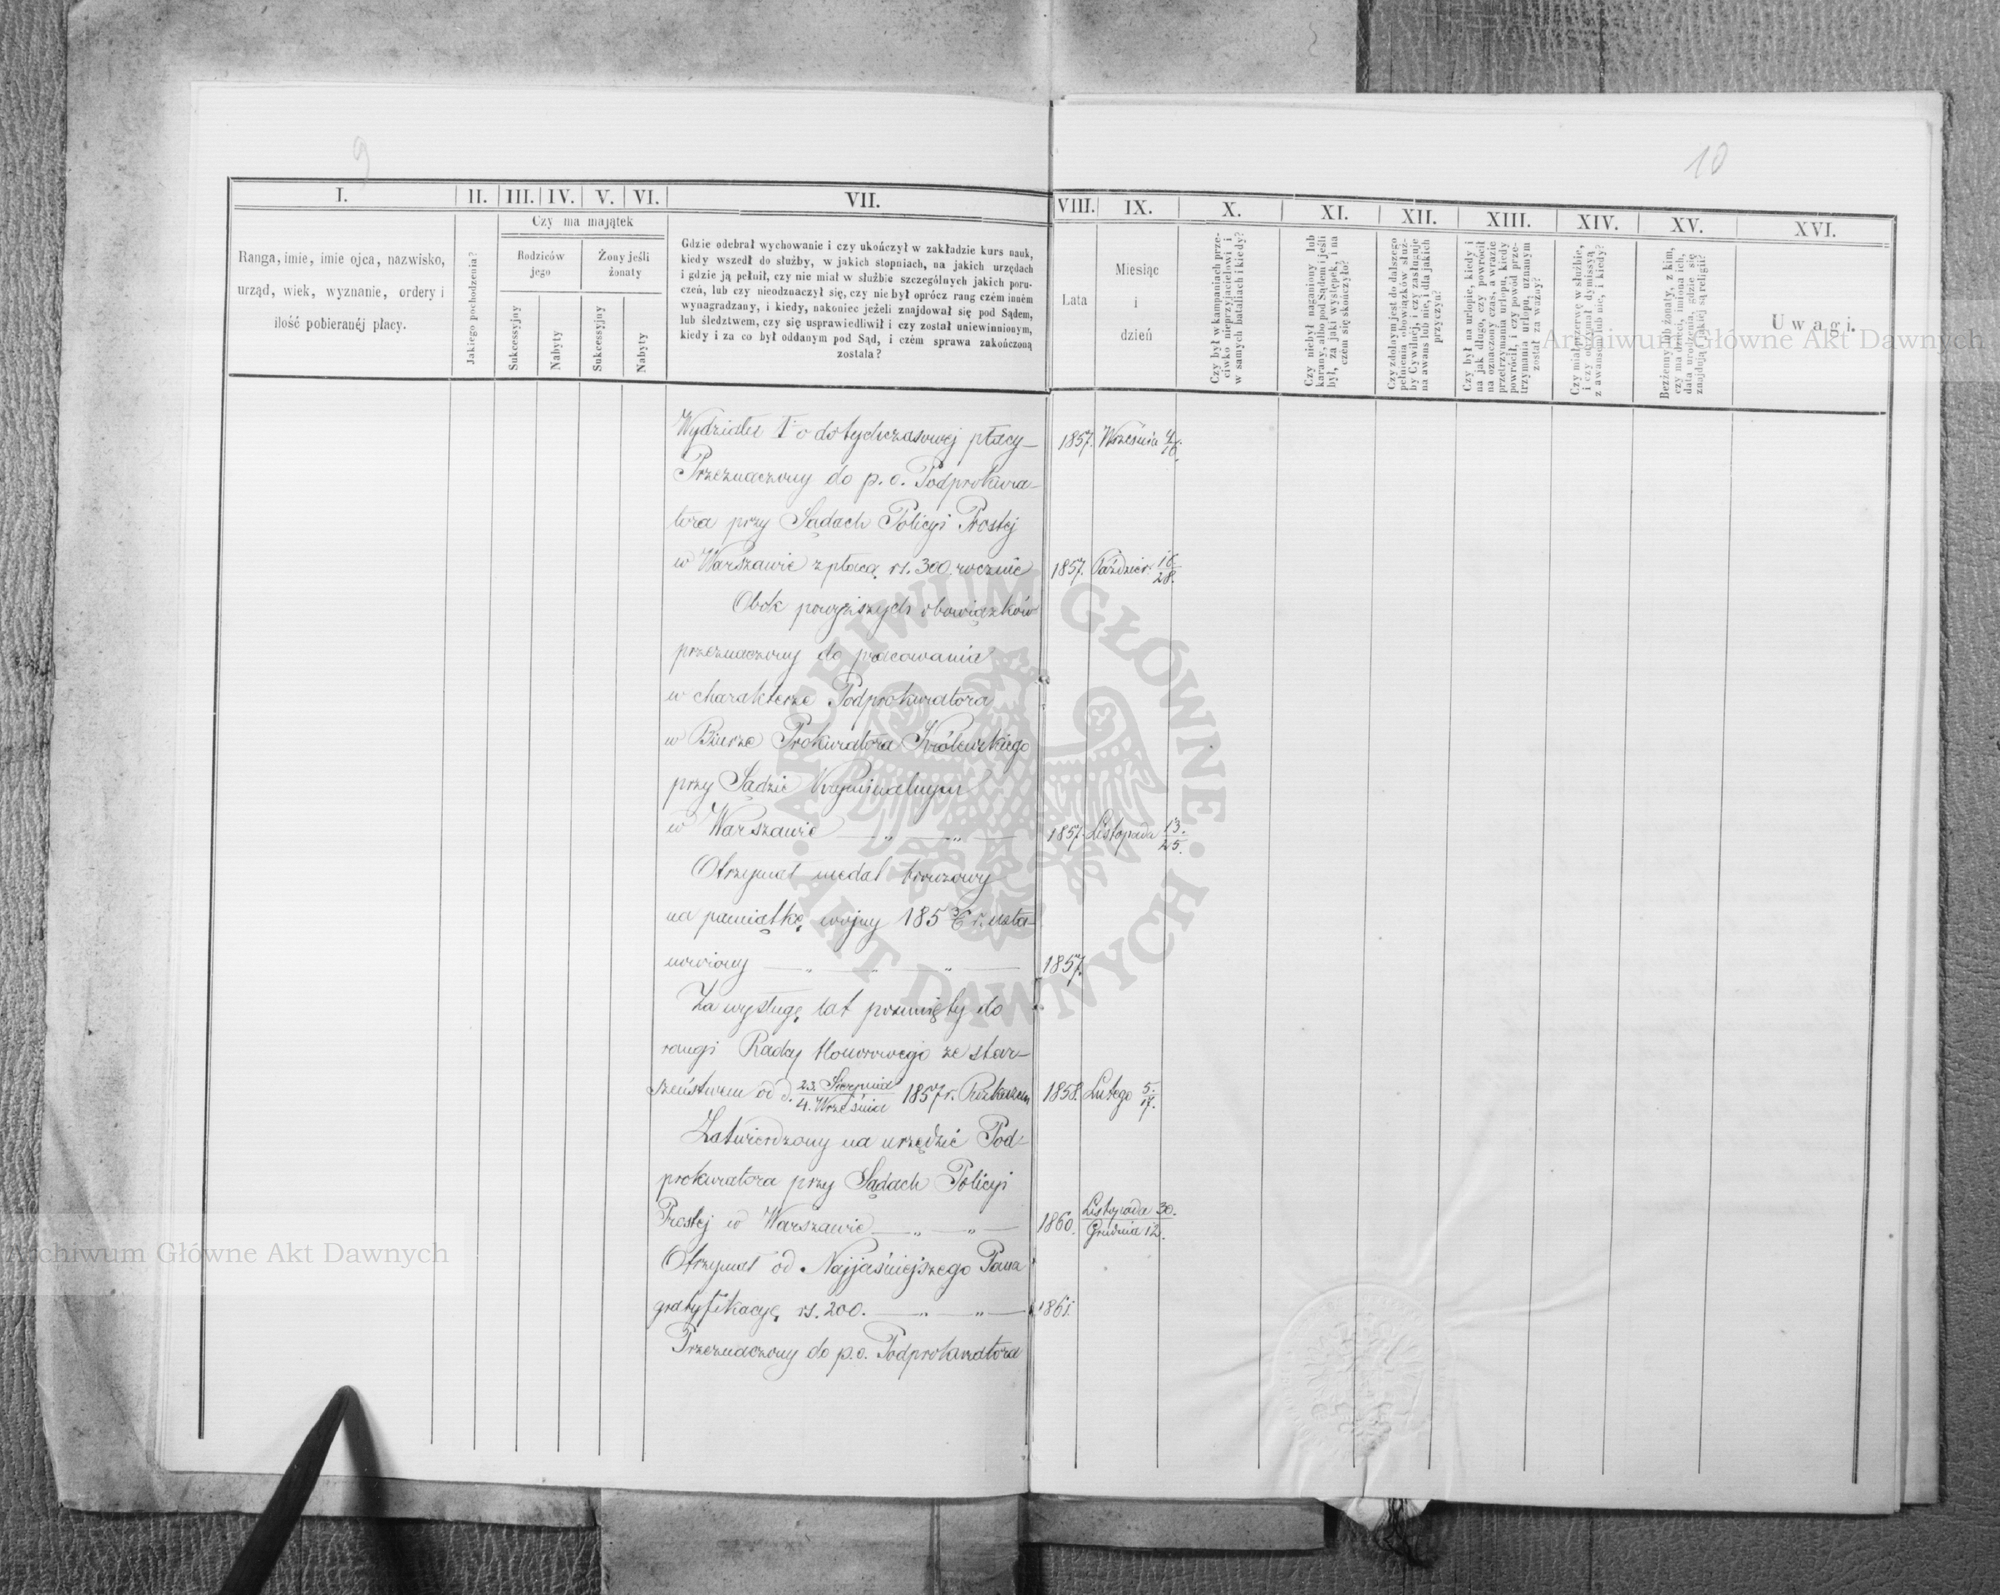 9
10
I.
II.
III.
IV.
V.
VI.
VII.
VIII.
IX.
X.
XI.
XII.
XIII.
XIV.
XV.
XVI.
Ranga, imie, imie ojca, nazwisko,
urząd, wiek, wyznanie, ordery i
ilość pobieranéj płacy.
Jakiego pochodzenia?
Czy ma majątek
Rodziców
jego
Żony jeśli
żonaty
Sukcessyjny
Nabyty
Sukcessyjny
Nabyty
Gdzie odebrał wychowanie i czy ukończył w zakładzie kurs nauk,
kiedy wszedł do służby, w jakich stopniach, na jakich urzędach
i gdzie ją pełnił, czy nie miał w służbie szczególnych jakich poru-
czeń, lub czy nieodznaczył się, czy nie był oprócz rang czém inném
wynagradzany, i kiedy, nakoniec jeżeli znajdował się pod Sądem,
lub śledztwem, czy się usprawiedliwił i czy został uniewinnionym,
kiedy i za co był oddanym pod Sąd, i czém sprawa zakończoną
została?
Lata
Miesiąc
i
dzień
Czy był w kampaniach prze-
ciwko nieprzyjacielowi i
w samych bataliach i kiedy?
Czy niebył naganiony lub
karany, albo pod Sądem i jeśli
był, za jaki występek, i na
czém się skończyło?
Czy zdolnym jest do dalszego
pełnienia obowiązków służ-
by Cywilnej, i czy zasługuje
na awans lub nie, i dla jakich
przyczyn?
Czy był na urlopie, kiedy i
na jak długo, czy powrócił
na oznaczony czas, a w razie
przetrzymania urlopu, kiedy
powrócił, i czy powód prze-
trzymania urlopu, uznanym
został za ważny?
Czy miał przerwę w służbie,
i czy otrzymał dymissyą
z awansem lub nie, i kiedy?
Bezżenny lub żonaty, z kim,
czy ma dzieci, imiona ich,
data urodzenia, gdzie się
znajdują i jakiej są religii?
Uwagi.
Wydziału I o dotychczasowej płacy— 1857. Września 4/16.
Przeznaczony do p. o. Podprokura-
tora przy Sądach Policyi Prostej
w Warszawie z płacą rs. 300 rocznie 1857. Paździer. 16/28.
Obok powyższych obowiązków
przeznaczony do pracowania
w charakterze Podprokuratora
w Biurze Prokuratora Królewskiego
przy Sądzie Kryminalnym
w Warszawie — „ — „ — 1857. Listopada 13./25.
Otrzymał medal bronzowy
na pamiątkę wojny 185 3/6 r. usta-
nowiony — „ — „ — „ — 1857.
Za wysługę lat posunięty do
rangi Radcy Honorowego ze star-
szeństwem od d. 23. Sierpnia/4. Września 1857 r. Rozkazem 1858. Lutego 5./17.
Zatwierdzony na urzędzie Pod-
prokuratora przy Sądach Policyi
Prostej w Warszawie — „ — „ — 1860. Listopada 30./Grudnia 12.
Otrzymał od Najjaśniejszego Pana
gratyfikacyę rs. 200. — „ — „ — 1861.
Przeznaczony do p. o. Podprokuratora
ARCHIWUM GŁÓWNE
AKT DAWNYCH
Archiwum Główne Akt Dawnych
Archiwum Główne Akt Dawnych